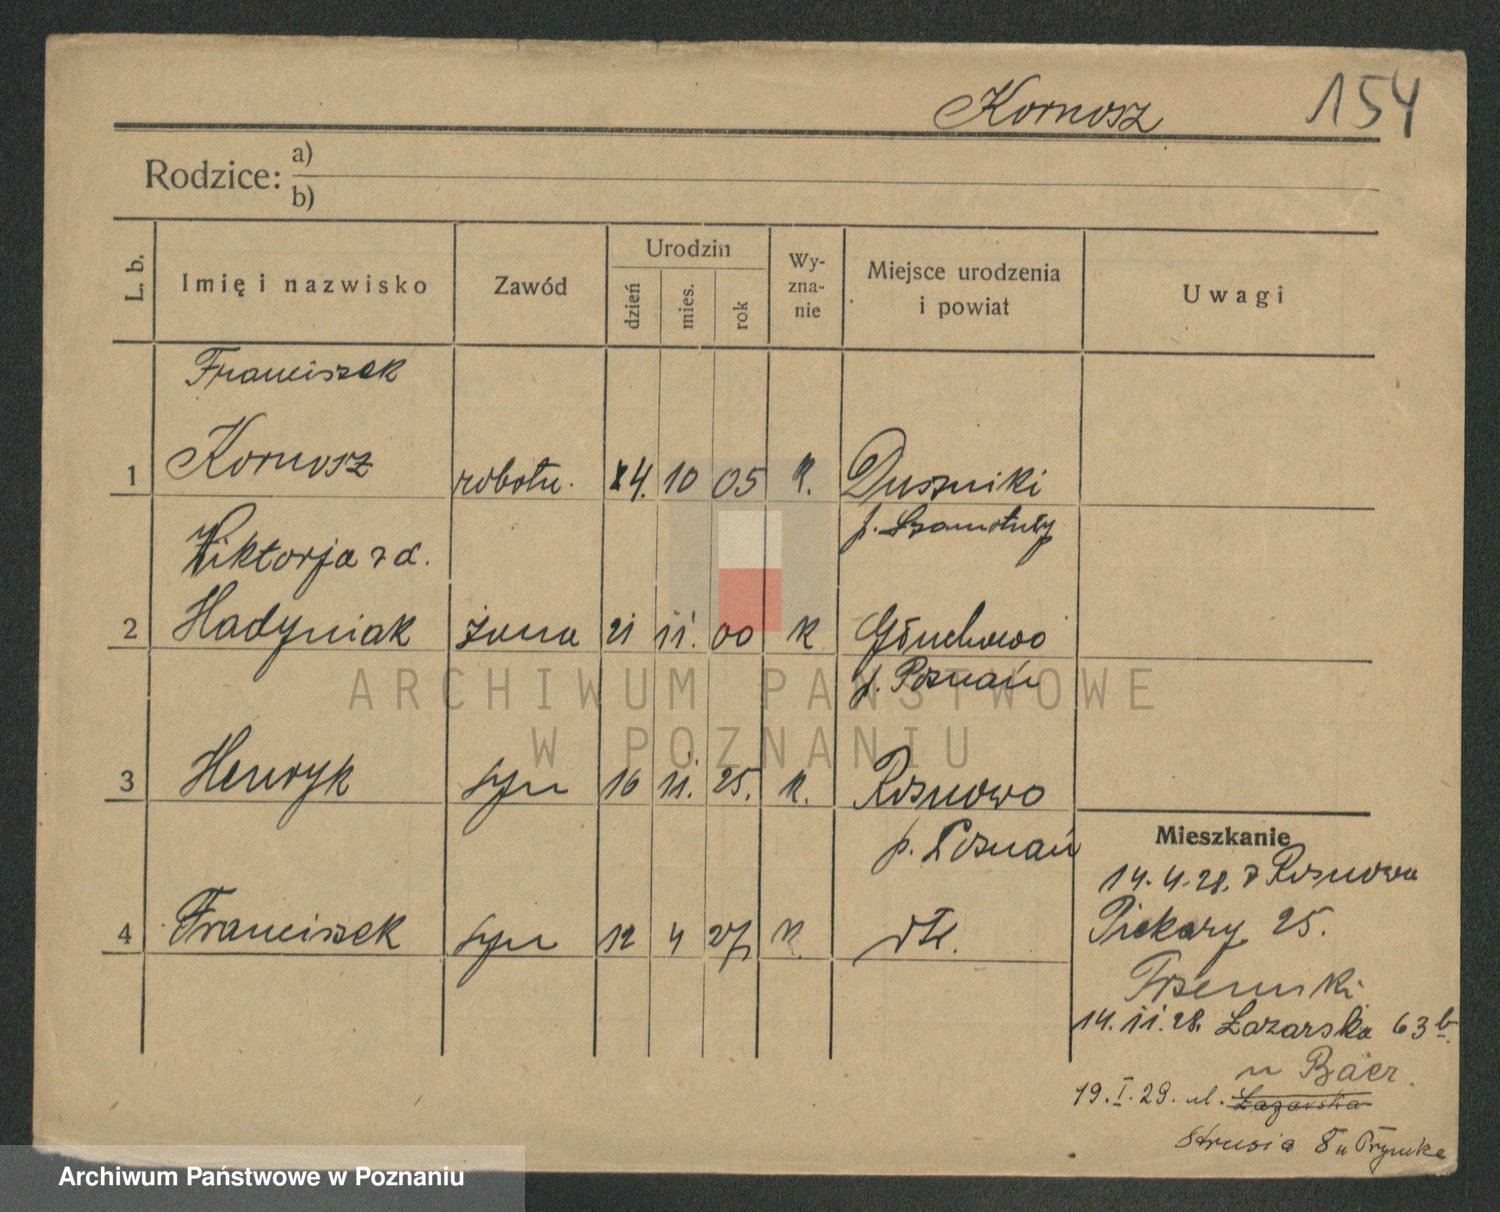 Kornosz 154
Rodzice: a)
b)
L. b.
Imię i nazwisko
Zawód
Urodzin
dzień
mies.
rok
Wy-
zna-
nie
Miejsce urodzenia
i powiat
Uwagi
Franciszek
1 Kornosz robotn. 24. 10 05 k. Duszniki
p. Szamotuły
Wiktorja z d.
2 Hadyniak żona 21 11. 00 k Głuchowo
p. Poznań
3 Henryk syn 16 11. 25. k. Rosnowo
p. Poznań
4 Franciszek syn 12 4 27 k. dtt.
Mieszkanie
14. 4. 28. z Rosnowa
Piekary 25.
14. 11. 28. Łazarska 63 b.
u Bäer.
19. I. 29. ul. Łazarska
Strusia 8 u
ARCHIWUM PAŃSTWOWE
W POZNANIU
Archiwum Państwowe w Poznaniu